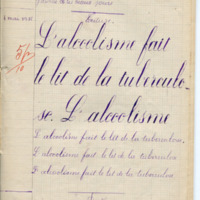 L'alcoolisme fait
le lit de la tuberculo-
se. L'alcoolisme
L'alcoolisme fait le lit de la tuberculose.
L'alcoolisme fait le lit de la tuberculose
L'alcoolisme fait le lit de la tuberculose